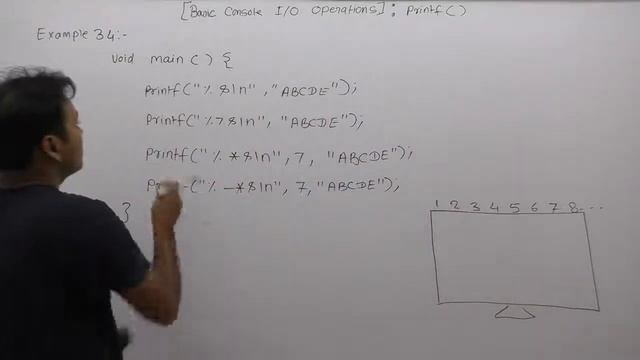 [Basic Console I/O Operations] : Printf( )
Example 34:-
void main( ) {
printf("%s\n", "ABCDE");
printf("%7s\n", "ABCDE");
printf("%*s\n", 7, "ABCDE");
("%-*s\n", 7, "ABCDE");
}
1 2 3 4 5 6 7 8 - - -